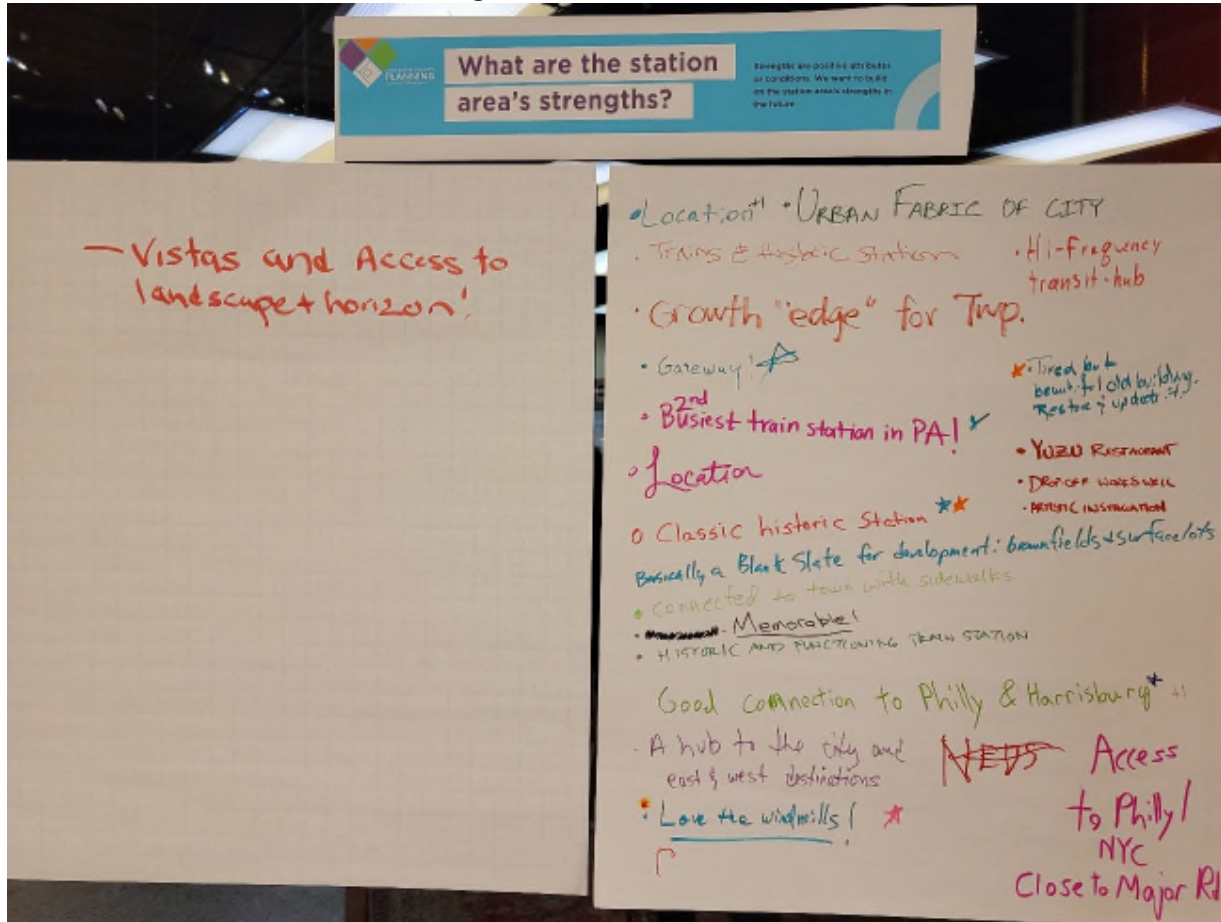 PLANNING
What are the station
area's strengths?
Strengths are positive attributes
or conditions. We want to build
on the station area's strengths in
the future.
— Vistas and Access to
landscape + horizon!
• Location +1 • URBAN FABRIC OF CITY
• Trains & Historic Station
• Hi-Frequency
transit-hub
• Growth "edge" for Twp.
• Gateway!
• Tired but
beautiful old building.
Restore & update it.
2nd
• Busiest train station in PA!
• YUZU RESTAURANT
• Location
• DROP OFF WORKS WELL
• ARTISTIC INSTALLATION
o Classic historic Station
Basically a Blank Slate for development: brownfields + surface lots
• connected to town with sidewalks
• Memorable!
• HISTORIC AND FUNCTIONING TRAIN STATION
Good connection to Philly & Harrisburg +1
• A hub to the city and
east & west destinations
• Love the windmills!
Access
to Philly/
NYC
Close to Major Rd